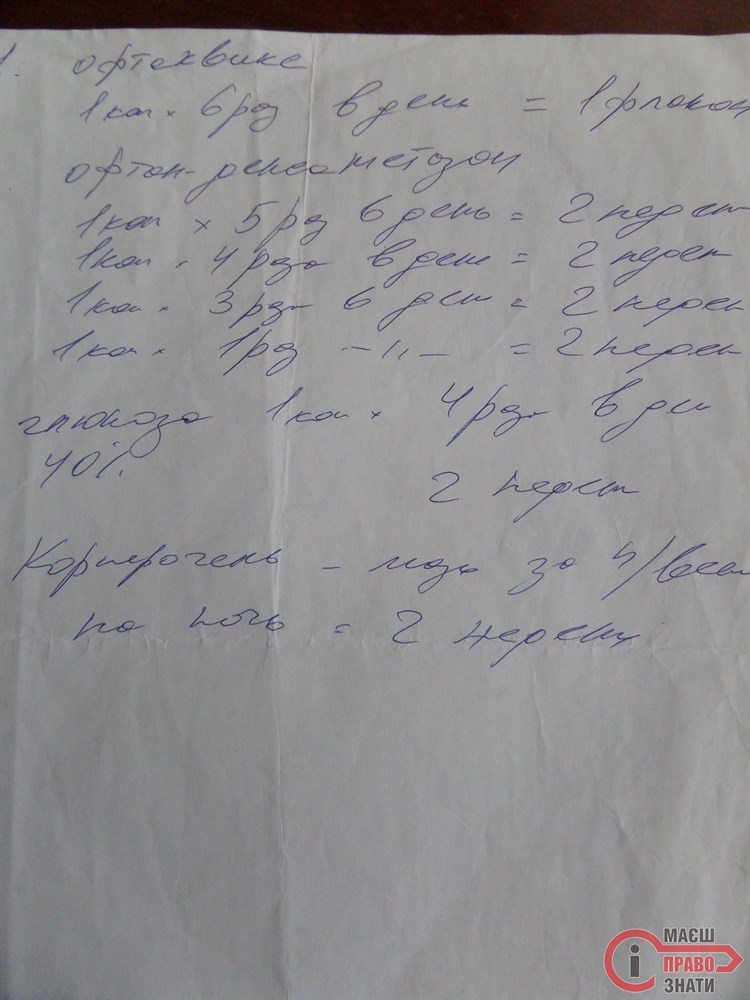 1. офтаквикс
1 кап × 6 раз в день = 1 флакон
офтан-дексаметазон
1 кап × 5 раз в день = 2 недели
1 кап × 4 раза в день = 2 недели
1 кап × 3 раза в день = 2 недели
1 кап × 1 раз –〃– = 2 недели
глюкоза 1 кап × 4 раза в день
40%
2 недели
Корнерегель – мазь за н/веко
на ночь = 2 недели
МАЄШ
ПРАВО
ЗНАТИ